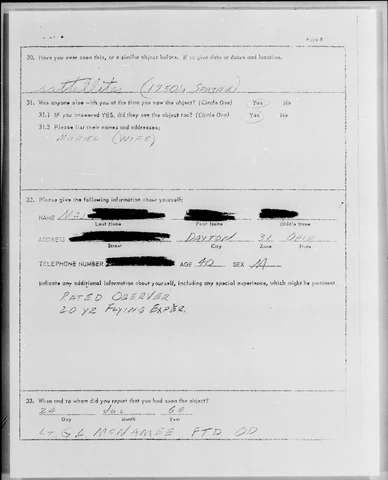 Page 8
30. Have you ever seen this, or a similar object before. If so give date or dates and location.
satellites (1950's SPUTNIK)
31. Was anyone else with you at the time you saw the object? (Circle One) Yes No
31.1 IF you answered YES, did they see the object too? (Circle One) Yes No
31.2 Please list their names and addresses:
MURIEL (WIFE)
32. Please give the following information about yourself:
NAME
Last Name First Name Middle Name
ADDRESS DAYTON 31 OHIO
Street City Zone State
TELEPHONE NUMBER AGE 40 SEX M
Indicate any additional information about yourself, including any special experience, which might be pertinent.
RATED OBSERVER
20 YR FLYING EXPER.
33. When and to whom did you report that you had seen the object?
24 JUL 64
Day Month Year
LT. G L MCNAMEE FTD OD